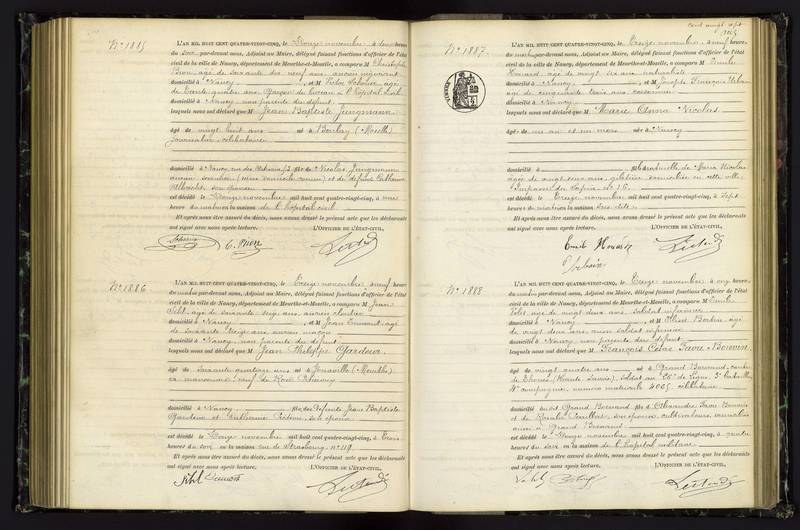 N° 1885
L'AN MIL HUIT CENT QUATRE-VINGT-CINQ, le Douze novembre, à deux heures
du soir par-devant nous, Adjoint au Maire, délégué faisant fonctions d'officier de l'état
civil de la ville de Nancy, département de Meurthe-et-Moselle, a comparu M Christophe
âgé de soixante dix neuf ans, ancien négociant
domicilié à Nancy, et M Victor âgé
de trente quatre ans, garçon de bureau à l'hôpital civil
domicilié à Nancy non parents du défunt
lesquels nous ont déclaré que M Jean Baptiste Jungmann
âgé de vingt huit ans né à Boulay (Moselle)
journalier, célibataire
domicilié à Nancy, rue fils de Nicolas Jungmann
et de défunte Catherine
son épouse
est décédé le Douze novembre mil huit cent quatre-vingt-cinq, à
heures du matin en la maison de l'hôpital civil
Et après nous être assuré du décès, nous avons dressé le présent acte que les déclarants
ont signé avec nous après lecture. L'OFFICIER DE L'ÉTAT-CIVIL,
N° 1886
L'AN MIL HUIT CENT QUATRE-VINGT-CINQ, le Treize novembre, à neuf heures
du matin par-devant nous, Adjoint au Maire, délégué faisant fonctions d'officier de l'état
civil de la ville de Nancy, département de Meurthe-et-Moselle, a comparu M Jean
âgé de soixante seize ans, ancien
domicilié à Nancy, et M Jean âgé
de soixante treize ans, ancien maçon
domicilié à Nancy non parents du défunt
lesquels nous ont déclaré que M Jean Philippe Gardeur
âgé de soixante quatorze ans né à
veuf de
domicilié à Nancy fils des défunts Jean Baptiste
Gardeur et son épouse
est décédé le Douze novembre mil huit cent quatre-vingt-cinq, à trois
heures du soir en la maison rue de Strasbourg, n° 119
Et après nous être assuré du décès, nous avons dressé le présent acte que les déclarants
ont signé avec nous après lecture. L'OFFICIER DE L'ÉTAT-CIVIL,
N° 1887
L'AN MIL HUIT CENT QUATRE-VINGT-CINQ, le Treize novembre, à neuf heures
du matin par-devant nous, Adjoint au Maire, délégué faisant fonctions d'officier de l'état
civil de la ville de Nancy, département de Meurthe-et-Moselle, a comparu M Emile
âgé de vingt six ans, naturaliste
domicilié à Nancy, et M Joseph François Urbain
âgé de cinquante trois ans, cordonnier
domicilié à Nancy
lesquels nous ont déclaré que M Marie Anna Nicolas
âgé de un an et un mois née à Nancy
domicilié à fille naturelle de Marie Nicolas
âgée de vingt deux ans, giletière, domiciliée en cette ville
Impasse du Sapin n° 16
est décédé le Treize novembre mil huit cent quatre-vingt-cinq, à sept
heures du matin en la maison sus dite
Et après nous être assuré du décès, nous avons dressé le présent acte que les déclarants
ont signé avec nous après lecture. L'OFFICIER DE L'ÉTAT-CIVIL,
Urbain
N° 1888
L'AN MIL HUIT CENT QUATRE-VINGT-CINQ, le Treize novembre, à onze heures
du matin par-devant nous, Adjoint au Maire, délégué faisant fonctions d'officier de l'état
civil de la ville de Nancy, département de Meurthe-et-Moselle, a comparu M Emile
âgé de vingt deux ans, soldat infirmier
domicilié à Nancy, et M âgé
de vingt deux ans, aussi soldat infirmier
domicilié à Nancy non parents du défunt
lesquels nous ont déclaré que M François César Favre Bonvin
âgé de vingt quatre ans né à Grand Bornand, canton
de Thônes (Haute Savoie), soldat au de Ligne, 3e bataillon
4e compagnie, numéro matricule 4065, célibataire
domicilié au dit Grand Bornand fils d'Alexandre Favre Bonvin
et de son épouse, cultivateurs, domiciliés
aussi à Grand Bornand
est décédé le Douze novembre mil huit cent quatre-vingt-cinq, à quatre
heures du soir en la maison de l'hôpital militaire
Et après nous être assuré du décès, nous avons dressé le présent acte que les déclarants
ont signé avec nous après lecture. L'OFFICIER DE L'ÉTAT-CIVIL,